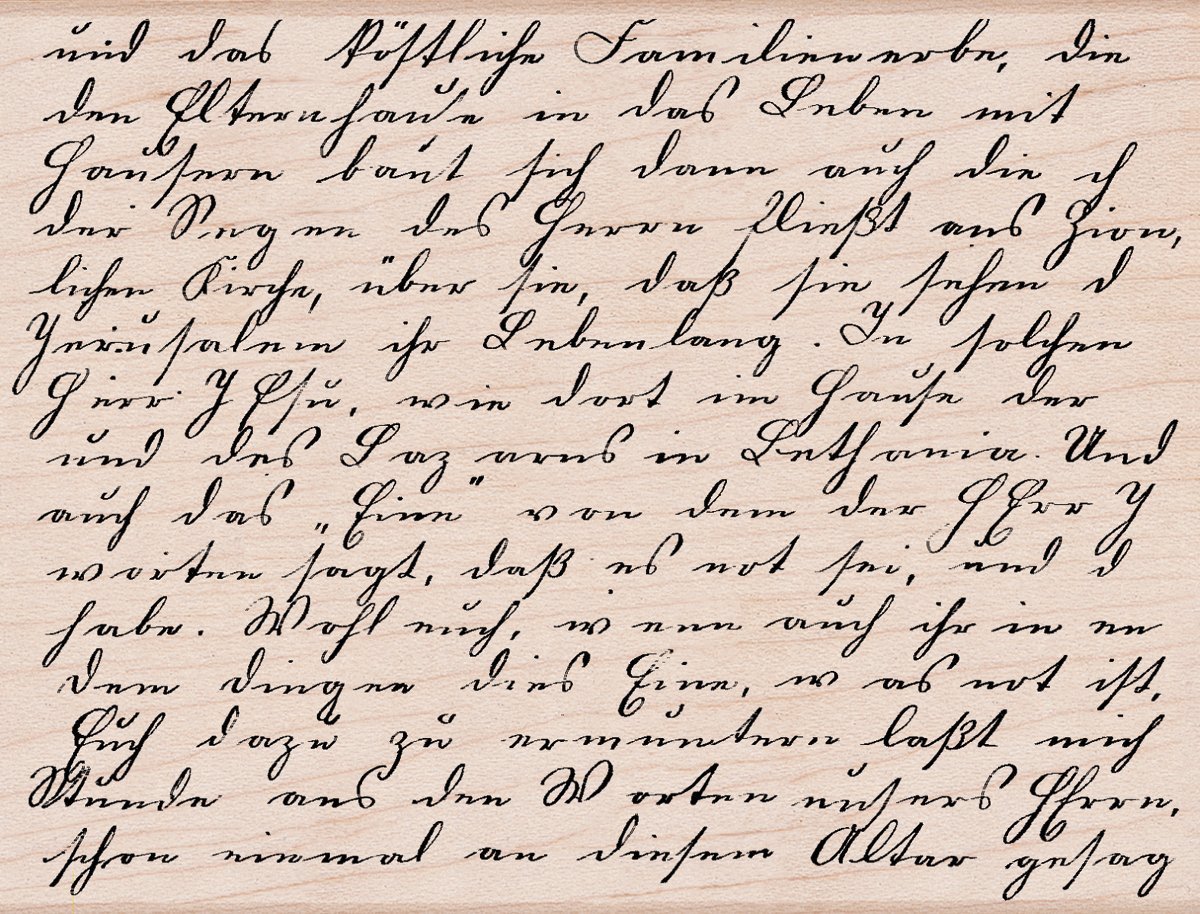 und das köstliche Familienerbe, die
den Elternhause in das Leben mit
Häusern baut sich dann auch die ch
der Segen des Herrn fließt aus Zion,
lichen Kirche, über sie, daß sie sehen d
Jerusalem ihr Lebenlang. In solchen
Herr JEsu, wie dort im Hause der
und des Lazarus in Bethania. Und
auch das „Eine" von dem der HErr J
worten sagt, daß es not sei, und d
habe. Wohl euch, wenn auch ihr in en
dem dingen dies Eine, was not ist,
Euch dazu zu ermuntern laßt mich
Stunde aus den Worten unsers HErrn,
schon einmal an diesem Altar gesag